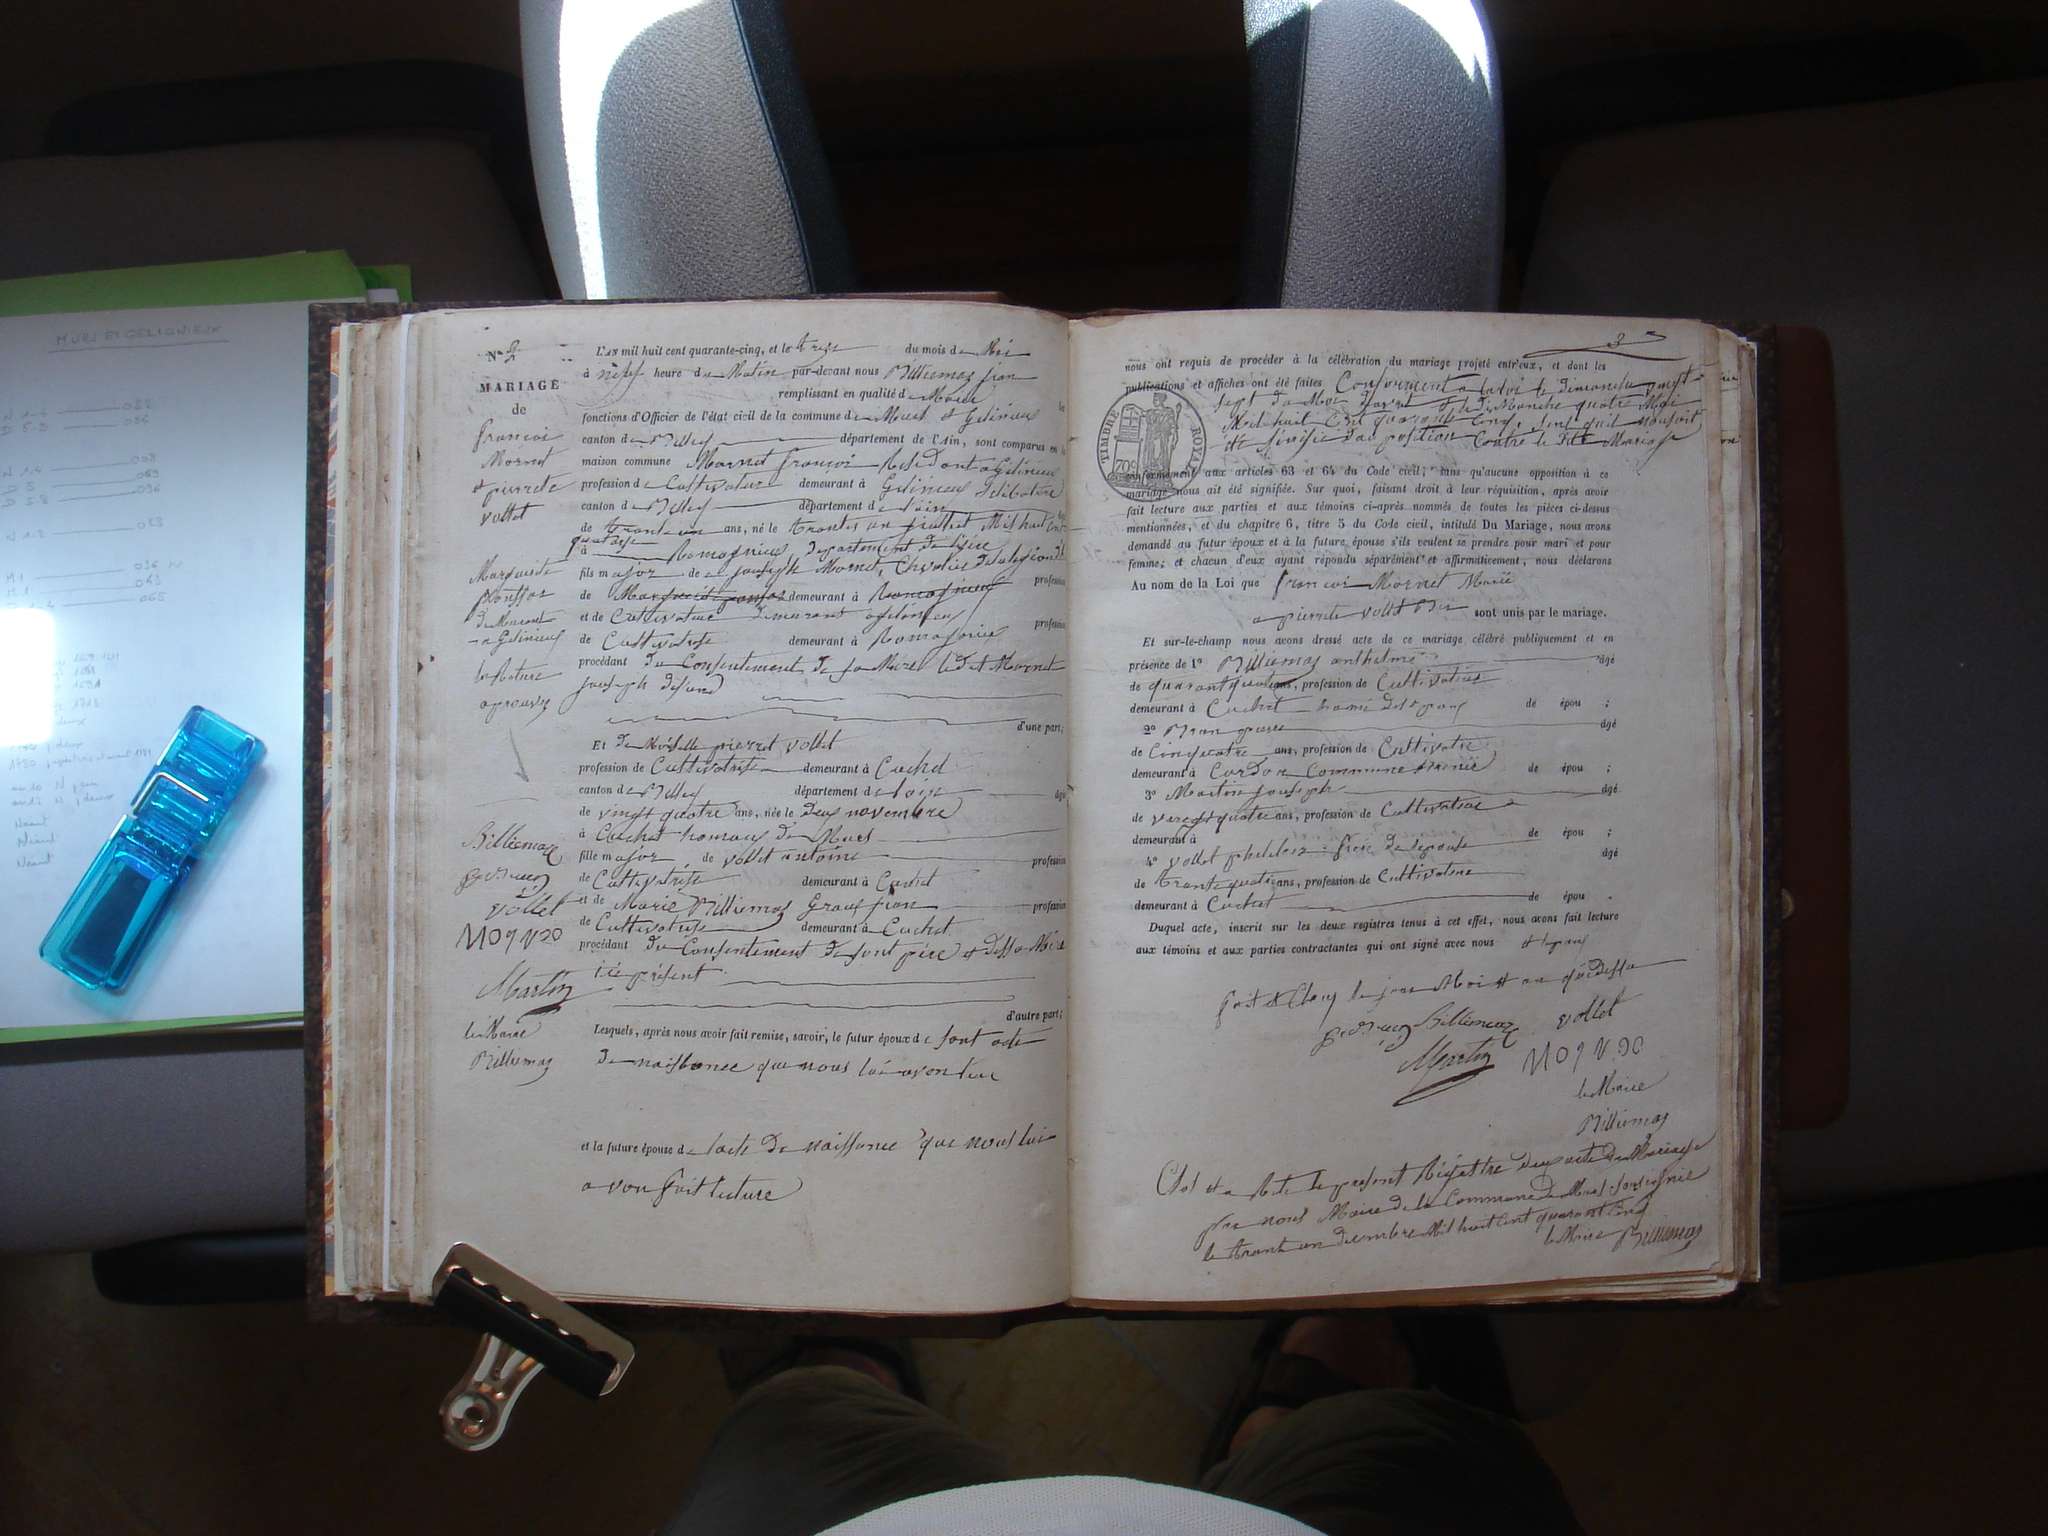 MURS ET GELIGNIEUX
N° 2
MARIAGE
de
françois
Mornet
et pierrete
vollet
Marguerite
ponsson
demeurent
a Gelinieux
la Rature
aprouvé
Billiemaz
vollet
Martin
le Maire
Billiemaz
L'AN mil huit cent quarante-cinq, et le treize du mois de Mai
à neuf heure du Matin par-devant nous Billiemaz
remplissant en qualité de Maire les
fonctions d'Officier de l'état civil de la commune de Murs et Gelinieux
canton de Belley département de l'Ain, sont comparus en la
maison commune Mornet françois Residant a Gelinieux
profession de Cultivateur demeurant à Gelinieux Selibataire
canton de Belley département de lain âgé
de trante un ans, né le trante un juillet Mil huit Cent
quatorze
à Romagnieux departement de lisère
fils majeur de joseph Mornet, Chevalier de la légion d'h profession
de demeurant à Romagnieux
et de Cultivateur demeurant a gelinieux profession
de Cultivatrise demeurant à Romagnieux
procédant du Consentement de sa Mère ledit Mornet
joseph défund
d'une part;
Et de Moiselle pierret vollet
profession de Cultivatrise demeurant à Cuchet
canton de Belley département de lain âgé
de vingt quatre ans, née le deux novembre
à Cuchet hamaux de Murs
fille majeur de vollet antoine profession
de Cultivatrise demeurant à Cuchet
et de Marie Billiemaz Grosjean profession
de Cultivatrise demeurant à Cuchet
procédant du Consentement de sont père et de sa Mère
ici présent
d'autre part;
Lesquels, après nous avoir fait remise, savoir, le futur époux de sont acte
de naissance que nous lui avon leue
et la future épouse de lacte de naissance que nous lui
avon fait lecture
3
nous ont requis de procéder à la célébration du mariage projeté entr'eux, et dont les
publications et affiches ont été faites Conforment a la loi le dimanche vingt
sept du Moi davril et le diManche quatre Mai
Mil huit Cent quarante Cinq, sent quil nous soit
été sinifié dau position Contre le dit Mariage
TIMBRE ROYAL
70c
conformément aux articles 63 et 64 du Code civil, sans qu'aucune opposition à ce
mariage nous ait été signifiée. Sur quoi, faisant droit à leur réquisition, après avoir
fait lecture aux parties et aux témoins ci-après nommés de toutes les pièces ci-dessus
mentionnées, et du chapitre 6, titre 5 du Code civil, intitulé Du Mariage, nous avons
demandé au futur époux et à la future épouse s'ils veulent se prendre pour mari et pour
femme; et chacun d'eux ayant répondu séparément et affirmativement, nous déclarons
Au nom de la Loi que francoi Mornet Marié
a pierrete vollet sont unis par le mariage.
Et sur-le-champ nous avons dressé acte de ce mariage célébré publiquement et en
présence de 1° Billiemaz anthelme âgé
de quarant quatre ans, profession de Cultivateur
demeurant à Cuchet de épou ;
2° âgé
de Cinquante ans, profession de Cultivateur
demeurant à Cordon Commune de épou ;
3° Martin joseph âgé
de vingt quatre ans, profession de Cultivateur
demeurant à de épou ;
4° vollet frère de lépouse âgé
de trante quatre ans, profession de Cultivateur
demeurant à Cuchet de épou .
Duquel acte, inscrit sur les deux registres tenus à cet effet, nous avons fait lecture
aux témoins et aux parties contractantes qui ont signé avec nous
fait et Clos les jour Moi et an que dessu
Billiemaz vollet
Martin
le Maire
Billiemaz
Clos et arreté le présent Régistre des acte de Mariage
par nous Maire de la Commune de Murs soussignié
le trante un décembre Mil huit Cent quarant Cinq
le Maire Billiemaz